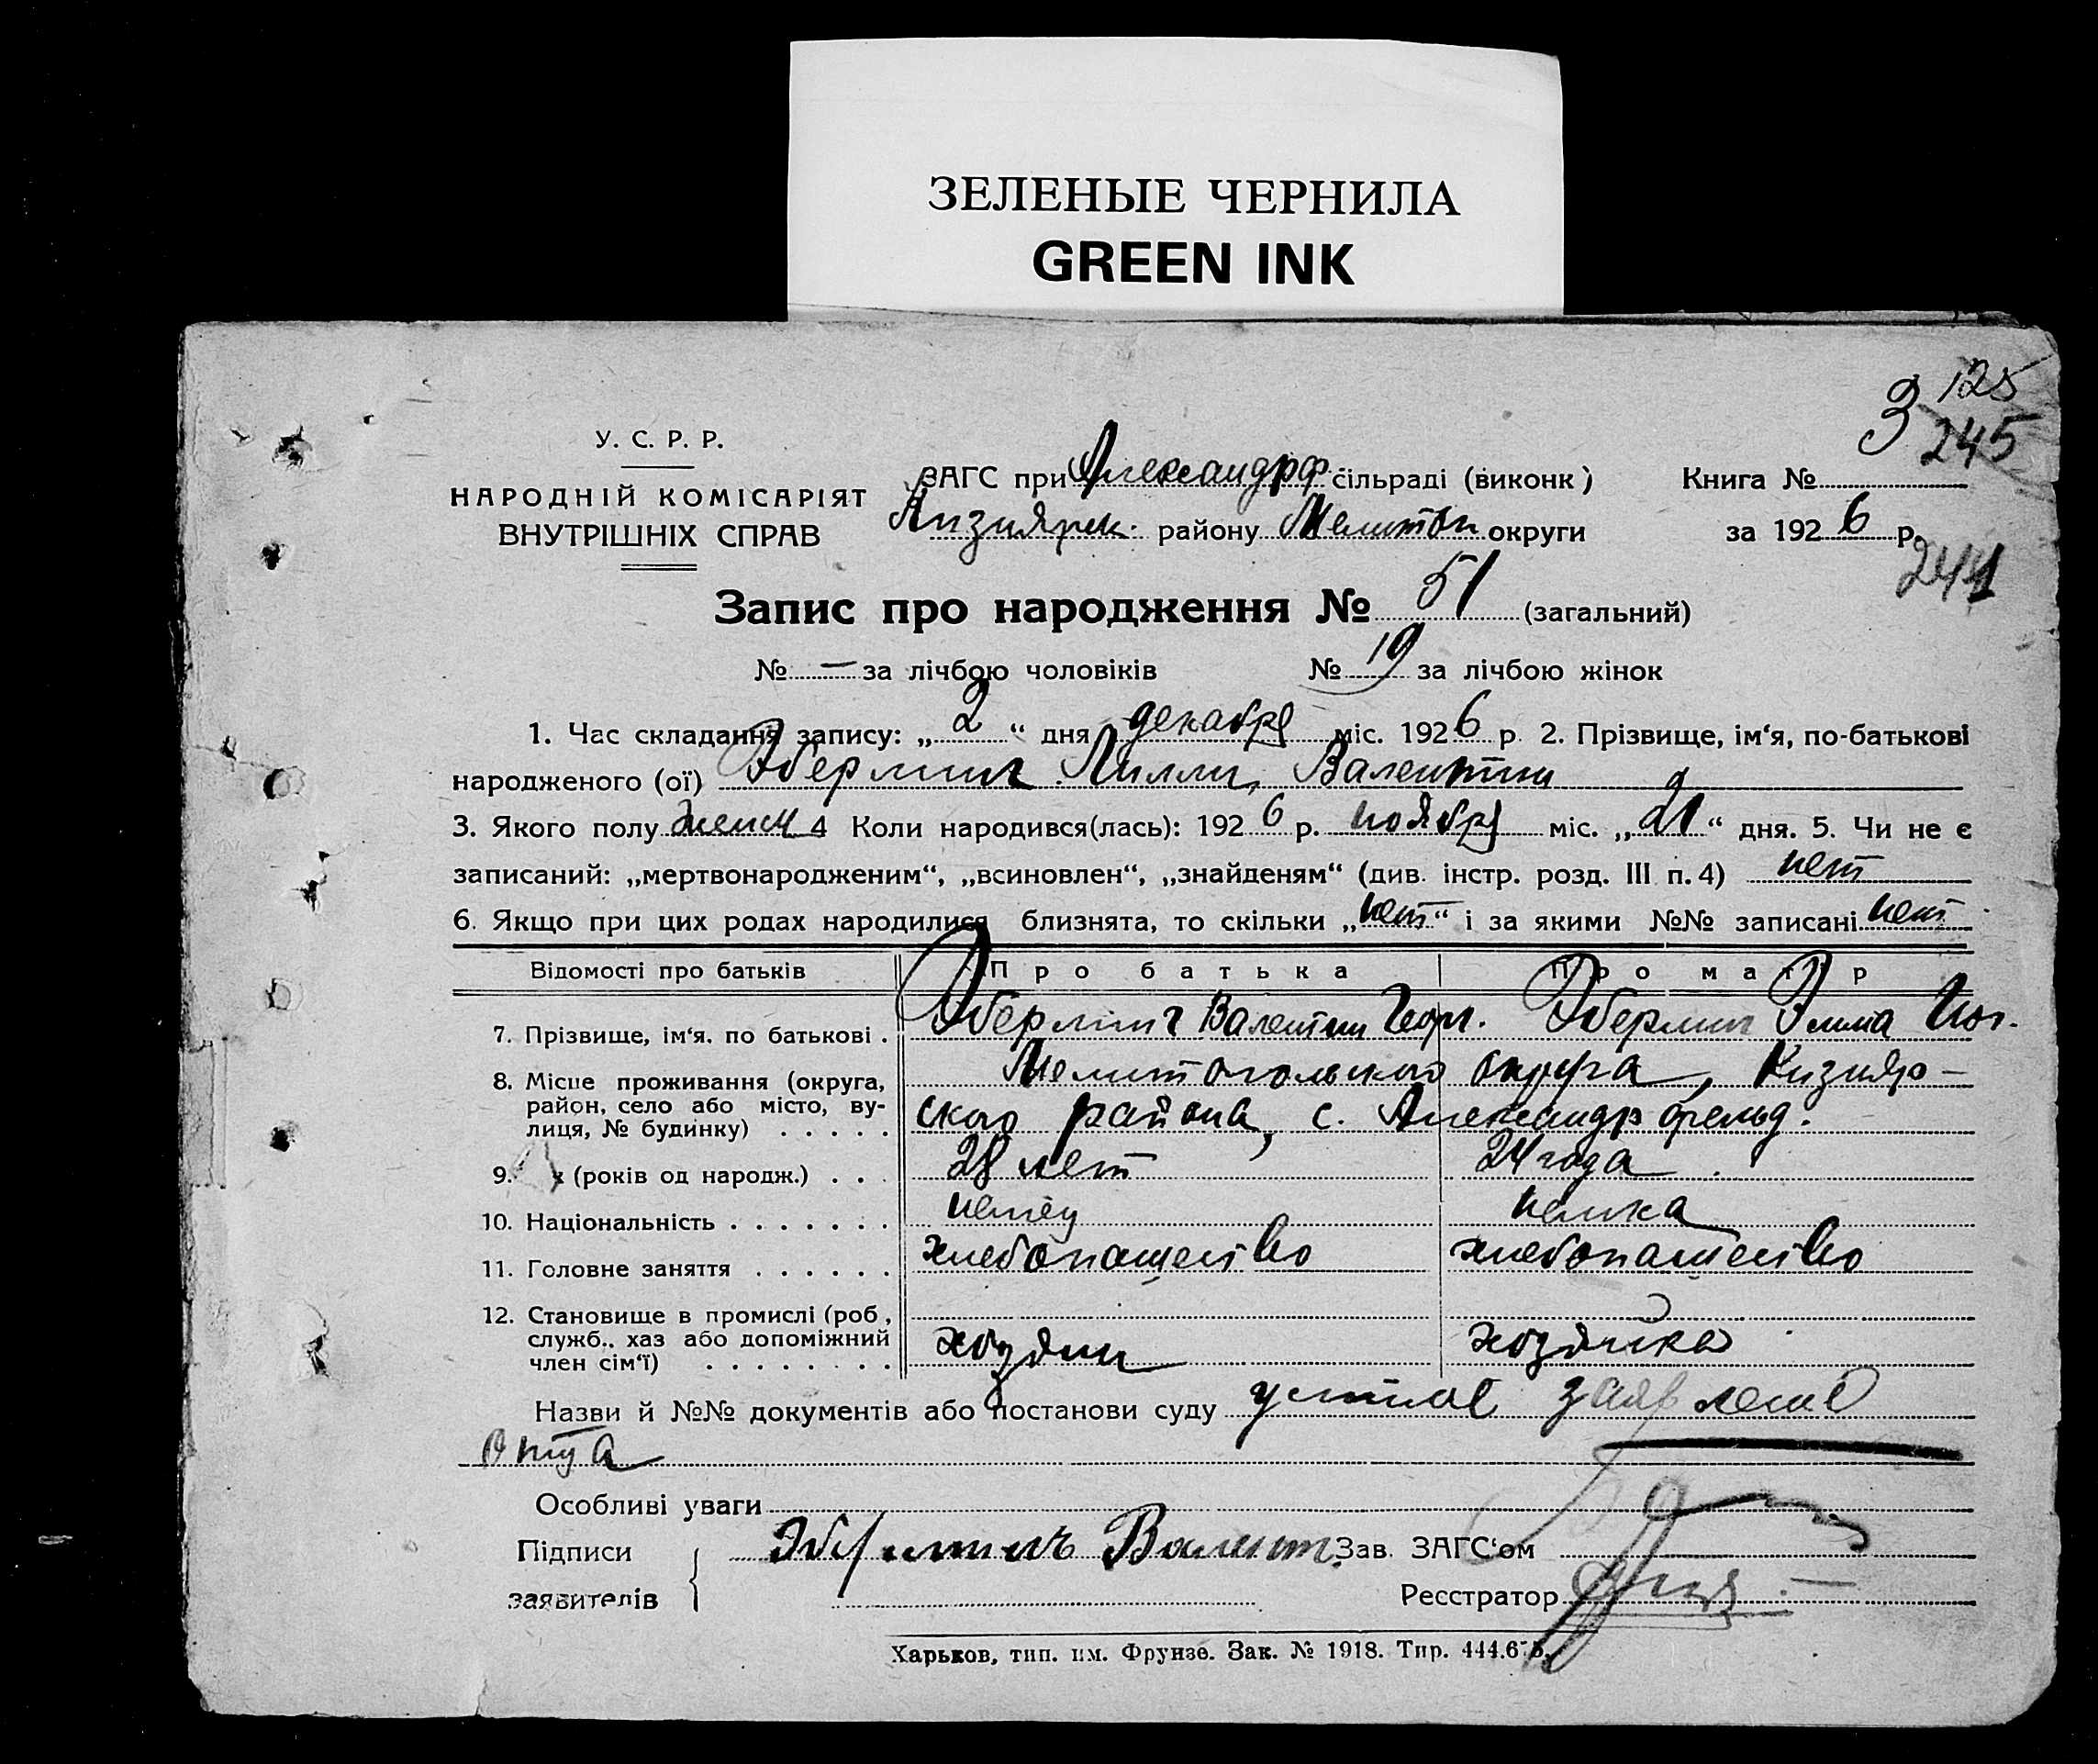 ЗЕЛЕНЫЕ ЧЕРНИЛА
GREEN INK
125
3 245
У. С. Р. Р.
НАРОДНІЙ КОМІСАРІЯТ
ВНУТРІШНІХ СПРАВ
ЗАГС при Александрф. сільраді (виконк)
Кизиярск. району Мелитоп округи
Книга №
за 1926 р.
244
Запис про народження № 51 (загальний)
№ — за лічбою чоловіків № 19 за лічбою жінок
1. Час складання запису: „2“ дня декабря міс. 1926 р. 2. Прізвище, ім‘я, по-батькові
народженого (ої) Эберлинг Лилли, Валентин
3. Якого полу женск 4 Коли народився(лась): 1926 р. ноября міс. „21“ дня. 5. Чи не є
записаний: „мертвонародженим“, „всиновлен“, „знайденям“ (див. інстр. розд. III п. 4) нет
6. Якщо при цих родах народилися близнята, то скільки „нет“ і за якими №№ записані нет
Відомості про батьків Про батька Про матір
7. Прізвище, ім‘я. по батькові . Эберлинг Валентин Георг. Эберлинг Эмма Иог.
8. Місце проживання (округа, район, село або місто, вулиця, № будинку) . . . . . Мелитопольского округа, Кизиярского района, с. Александрфельд.
9. (років од народж.) . . . 28 лет 24 года
10. Національність . . . . . . . немец немка
11. Головне заняття . . . . . . хлебопашество хлебопашество
12. Становище в промислі (роб,
служб., хаз або допоміжний
член сім‘ї) . . . . . . . . хозяин хозяйка
Назви й №№ документів або постанови суду устное заявление
отца
Особливі уваги
Підписи
заявителів
Эберлингъ Валент. Зав. ЗАГС‘ом
Реєстратор
Харьков, тип. им. Фрунзе. Зак. № 1918. Тир.